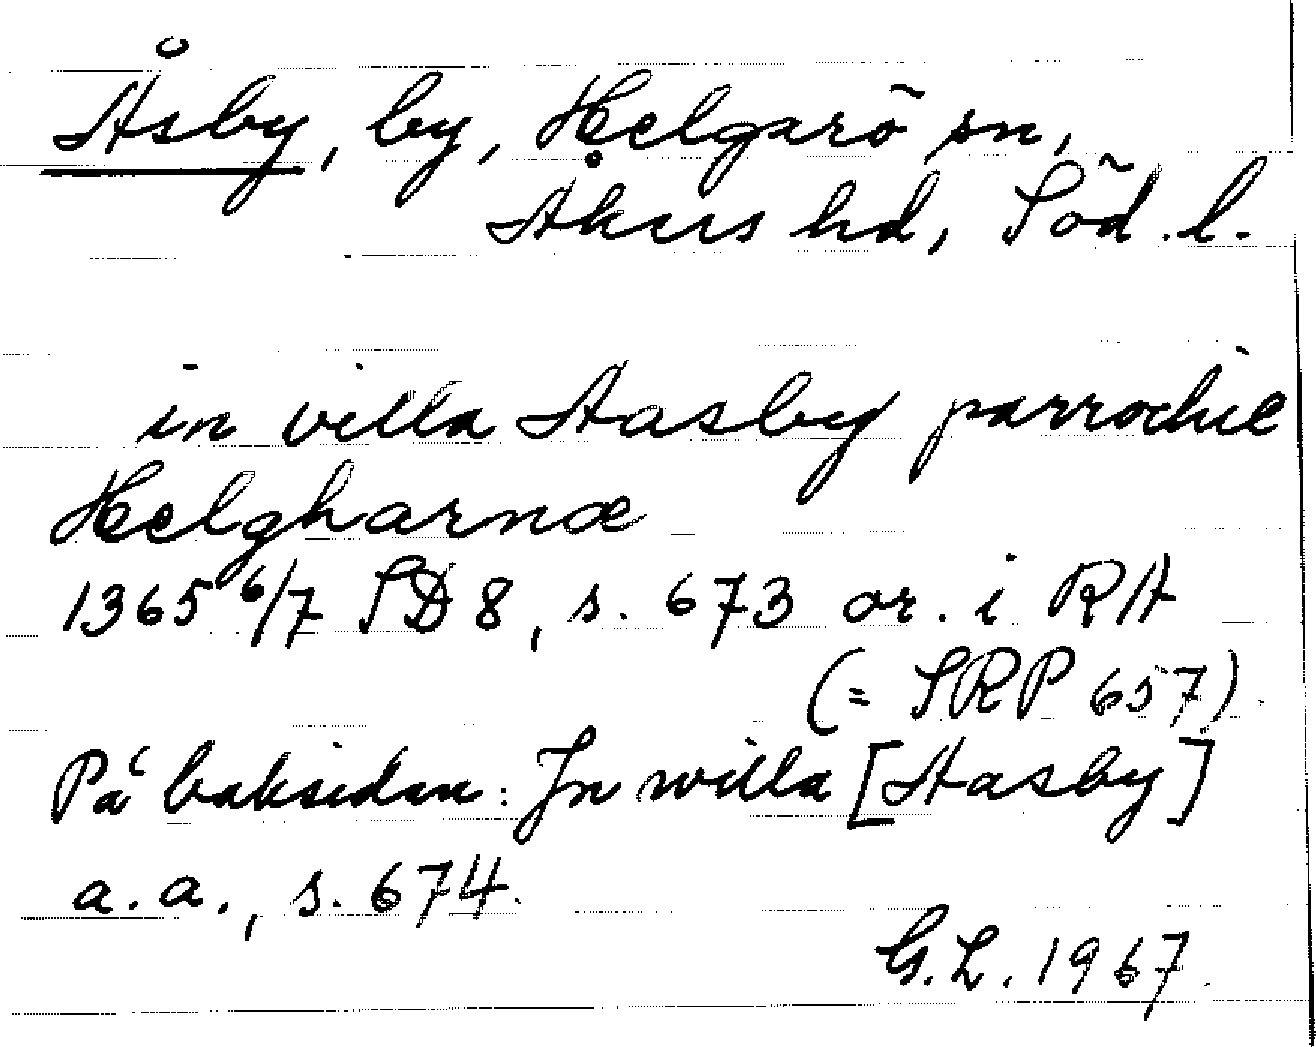 Åsby, by, Helgarö sn,
Åkers hd, Söd. l.
in villa Aasby parrochie
Helgharnœ
1365 6/7 SD 8, s. 673 or. i RA
(= SRP 657)
På baksidan: In willa [Aasby]
a.a., s. 674.
G.L. 1967.